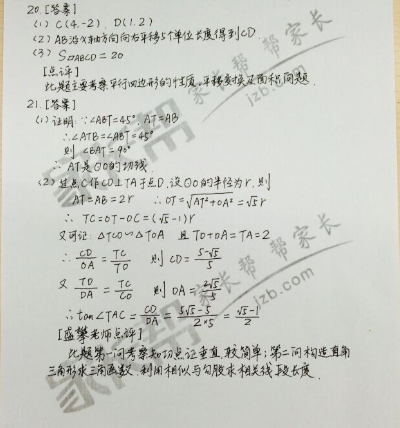 20. [答案]
(1) C(4,-2), D(1,2)
(2) AB沿x轴方向向右平移5个单位长度得到CD.
(3) S▱ABCD = 20
[点评]
此题主要考察平行四边形的性质,平移变换及面积问题.
21. [答案]
(1) 证明: ∵∠ABT=45°, AT=AB
∴∠ATB=∠ABT=45°
则 ∠BAT=90°
∴ AT是⊙O的切线.
(2) 过点C作CD⊥TA于点D,设⊙O的半径为r,则
AT=AB=2r ∴OT=√(AT²+OA²)=√5r
∴ TC=OT-OC=(√5-1)r
又可证: △TCD∽△TOA 且TD+DA=TA=2
∴ CD/OA = TC/TO 则 CD=(5-√5)/5
又 TD/DA = TC/CO 则 DA=2√5/5
∴tan∠TAC = CD/DA = (5√5-5)/(2×5) = (√5-1)/2
[盛攀老师点评]
此题第一问考察知切点证垂直,较简单;第二问构造直角
三角形求三角函数,利用相似与勾股求相关线段长度.
家长帮 帮帮家长
jzb.com
家长帮 帮帮家长
jzb.com